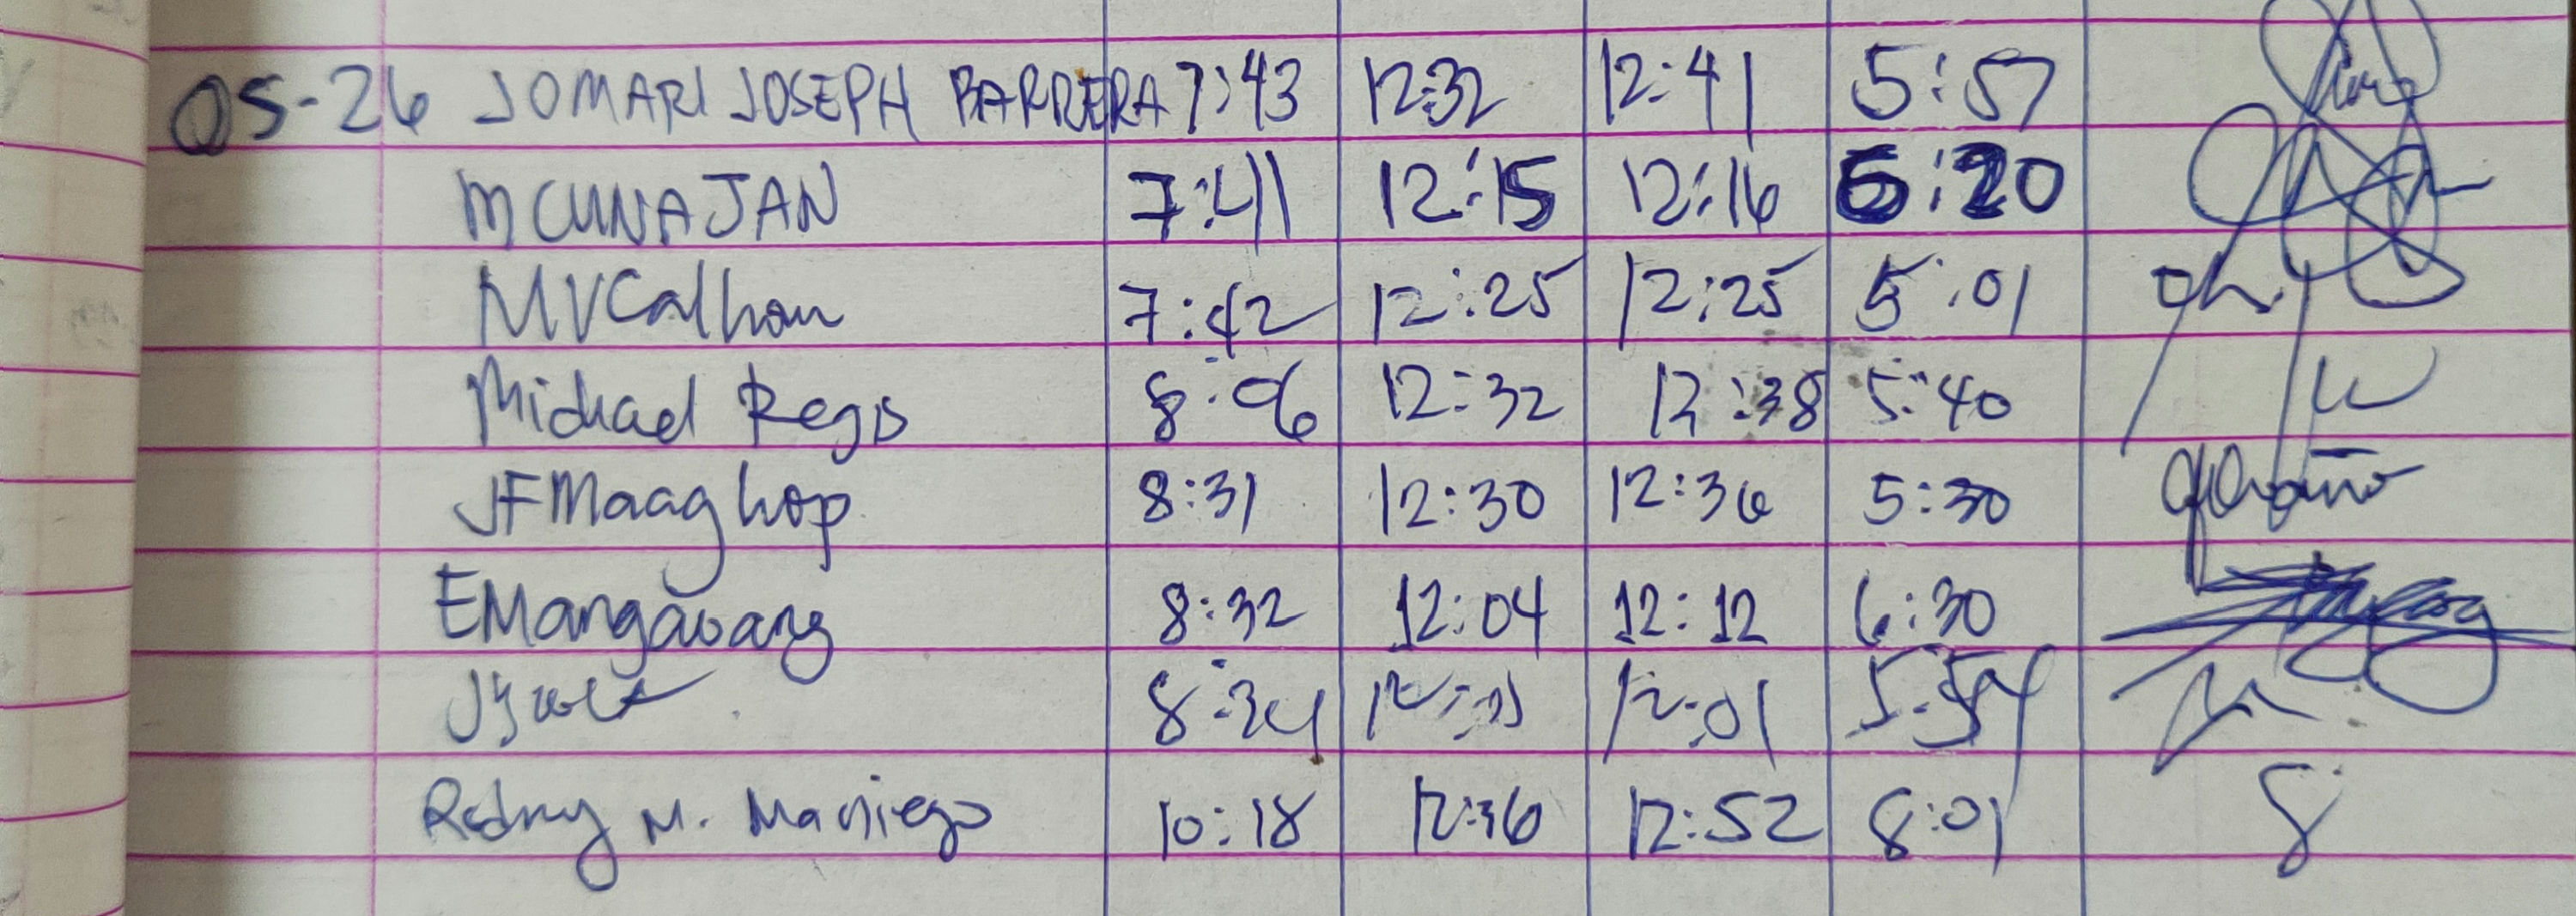 05-26 JOMARI JOSEPH BARRERA 7:43 12:32 12:41 5:57
MCUNAJAN 7:41 12:15 12:16 6:20
MVCalhou 7:42 12:25 12:25 5:01
Michael Regis 8:06 12:32 12:38 5:40
JFMaaghop 8:31 12:30 12:36 5:30
EMangaoang 8:32 12:04 12:12 6:30
8:34 12:01 12:01 5:54
Rodney M. Maniego 10:18 12:36 12:52 8:01